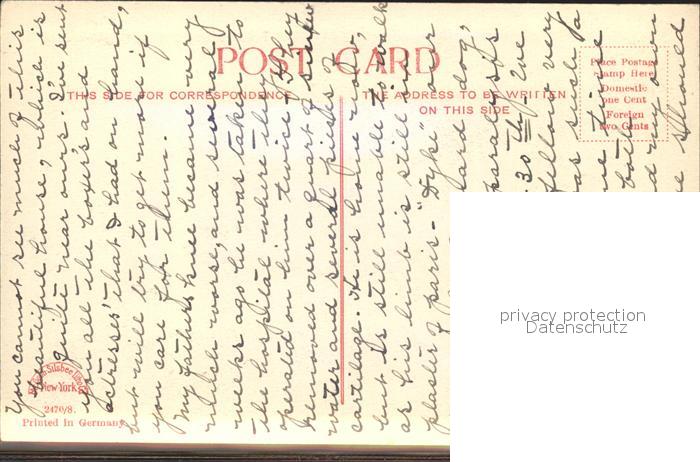 POST CARD
THIS SIDE FOR CORRESPONDENCE
THE ADDRESS TO BE WRITTEN
ON THIS SIDE
Place Postage
Stamp Here
Domestic
One Cent
Foreign
Two Cents
You cannot see much of this
beautiful house, which is
quite near ours. I've sent
you all the boxer's and
actresses' that I had on hand,
but will try to get more if
you care for them.
My father's knee became very
much worse, and several
weeks ago he was taken to
the hospital where they
operated on him twice. They
removed over a quart of
water and several pieces of
cartilage. He is home now,
but is still unable to walk
as his limb is still in a
plaster of paris. "Dyke" our
dog,
paralysis
30th. We
fellow very
was such a
time
both
not own
should
New York
2470/8.
Printed in Germany
privacy protection
Datenschutz